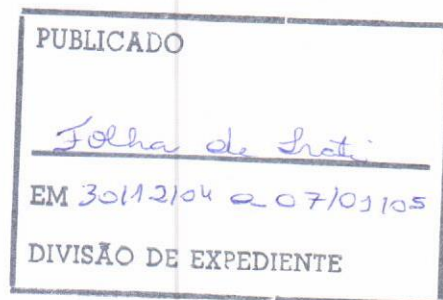 PUBLICADO
Folha de Irati
EM 30/12/04 a 07/01/05
DIVISÃO DE EXPEDIENTE